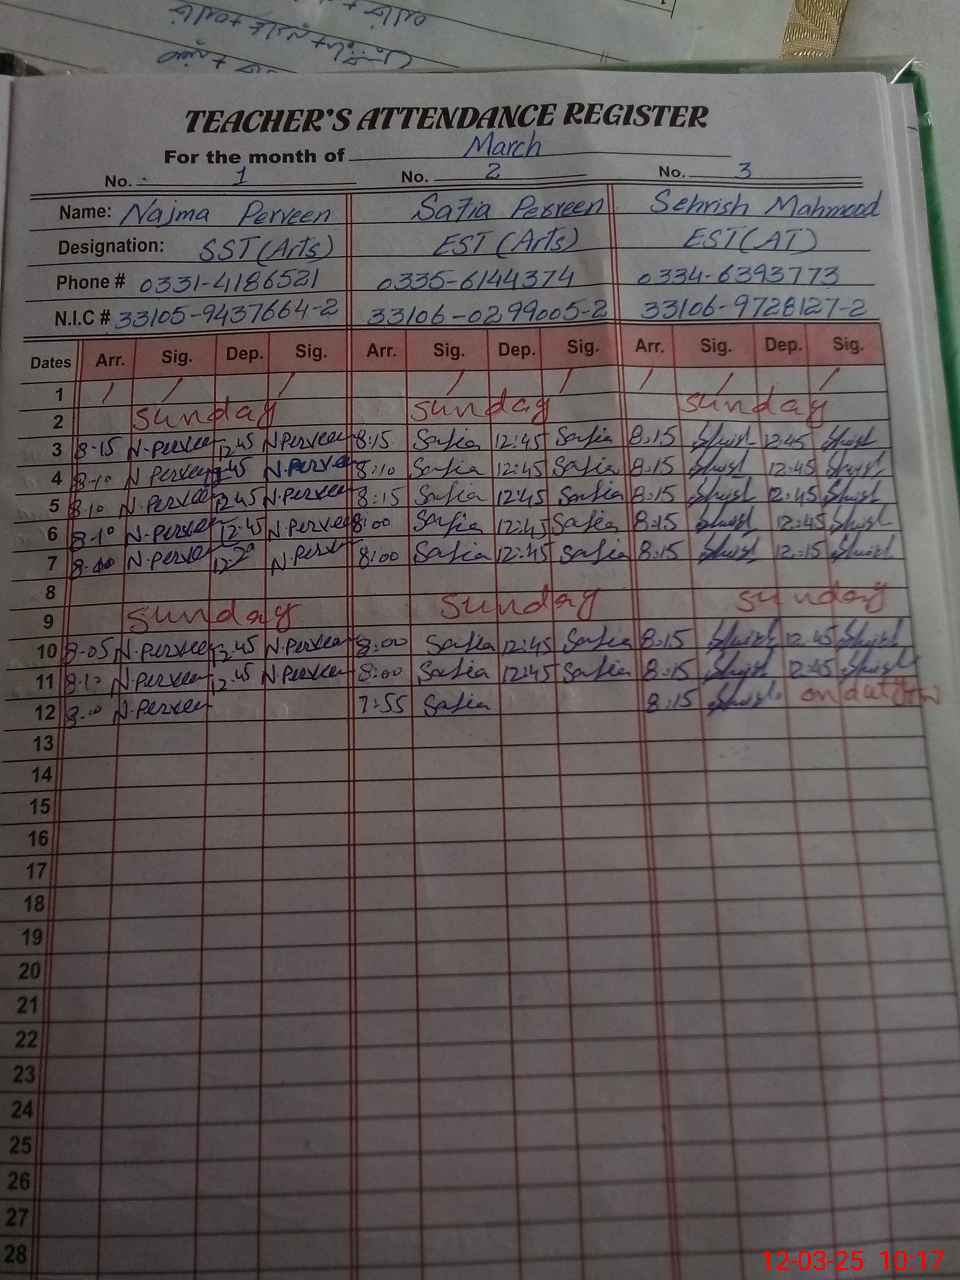 TEACHER'S ATTENDANCE REGISTER
For the month of March
No. 1 No. 2 No. 3
Name: Najma Perveen Safia Perveen Sehrish Mahmood
Designation: SST (Arts) EST (Arts) EST (AT)
Phone # 0331-4186521 0335-6144374 0334-6393773
N.I.C # 33105-9437664-2 33106-0299005-2 33106-9728127-2
Dates Arr. Sig. Dep. Sig. Arr. Sig. Dep. Sig. Arr. Sig. Dep. Sig.
1 / / / / / / / /
2 Sunday Sunday Sunday
3 8-15 N-Perveen 12 45 N-Perveen 8:15 Safia 12:45 Safia 8:15 12:45
4 8-10 N Perveen 45 N-Perveen 8:10 Safia 12:45 Safia 8:15 12:45
5 8-10 N-Perveen 12 45 N-Perveen 8:15 Safia 12:45 Safia 8:15 12:45
6 8-10 N-Perveen 12:45 N-Perveen 8:00 Safia 12:45 Safia 8:15 12:45
7 N-Perveen N-Perveen 8:00 Safia 12:45 Safia 8:15 12:15
8
9 Sunday Sunday Sunday
10 8-05 N-Perveen 12:45 N-Perveen 8:00 Safia 12:45 Safia 8:15 12:45
11 8-10 N-Perveen 12:45 N-Perveen 8:00 Safia 12:45 Safia 8:15 12:45
12 8-10 N-Perveen 7:55 Safia 8:15 on duty
13
14
15
16
17
18
19
20
21
22
23
24
25
26
27
28
12-03-25 10:17